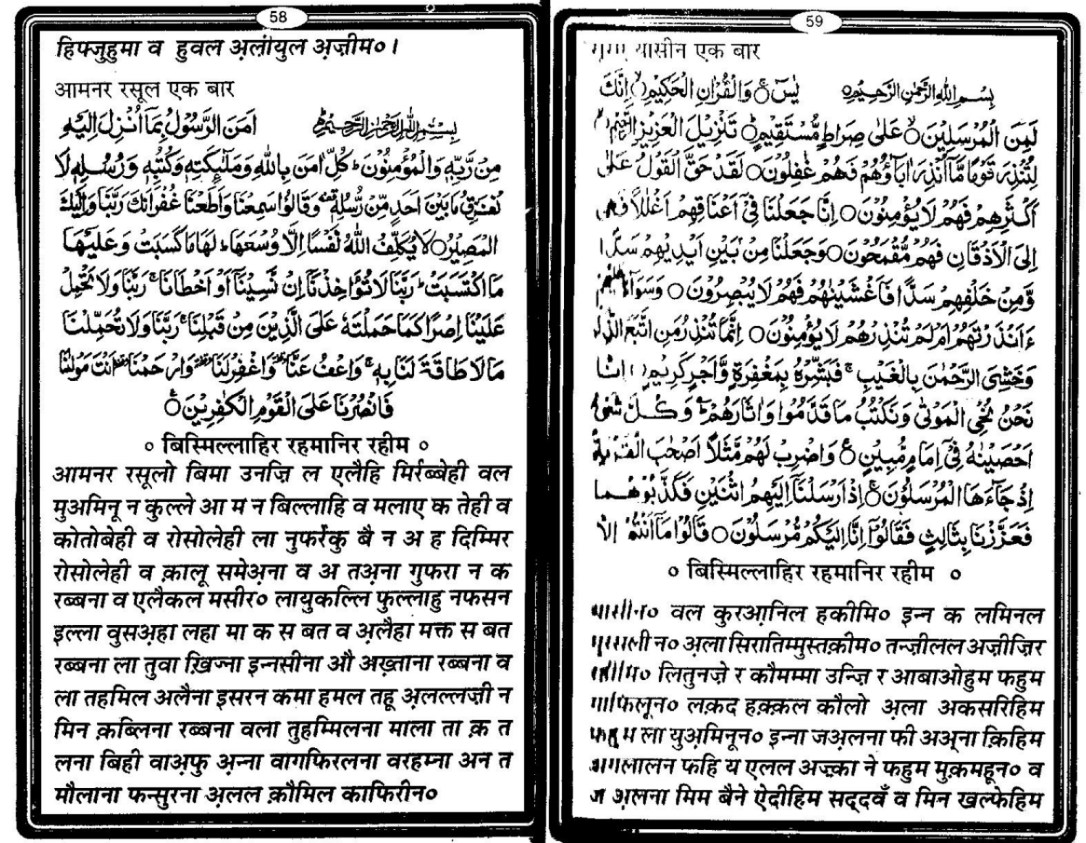 58
हिफ्जुहुमा व हुवल अ़लीयुल अज़ीम०।
आमनर रसूल एक बार
بِسْمِ اللهِ الرَّحْمٰنِ الرَّحِيْمِ اٰمَنَ الرَّسُوْلُ بِمَآ اُنْزِلَ اِلَيْهِ
مِنْ رَّبِّهٖ وَالْمُؤْمِنُوْنَ ؕ كُلٌّ اٰمَنَ بِاللهِ وَمَلٰٓئِكَتِهٖ وَكُتُبِهٖ وَرُسُلِهٖ لَا
نُفَرِّقُ بَيْنَ اَحَدٍ مِّنْ رُّسُلِهٖ وَقَالُوْا سَمِعْنَا وَاَطَعْنَا غُفْرَانَكَ رَبَّنَا وَاِلَيْكَ
الْمَصِيْرُ○ لَا يُكَلِّفُ اللهُ نَفْسًا اِلَّا وُسْعَهَا ؕ لَهَا مَا كَسَبَتْ وَعَلَيْهَا
مَا اكْتَسَبَتْ ؕ رَبَّنَا لَا تُؤَاخِذْنَآ اِنْ نَّسِيْنَآ اَوْ اَخْطَاْنَا ۚ رَبَّنَا وَلَا تَحْمِلْ
عَلَيْنَآ اِصْرًا كَمَا حَمَلْتَهٗ عَلَى الَّذِيْنَ مِنْ قَبْلِنَا ۚ رَبَّنَا وَلَا تُحَمِّلْنَا
مَا لَا طَاقَةَ لَنَا بِهٖ ۚ وَاعْفُ عَنَّا وَاغْفِرْلَنَا وَارْحَمْنَا اَنْتَ مَوْلٰنَا
فَانْصُرْنَا عَلَى الْقَوْمِ الْكٰفِرِيْنَ ○
० बिस्मिल्लाहिर रहमानिर रहीम ०
आमनर रसूलो बिमा उनज़ि ल एलैहि मिर्रब्बेही वल
मुअमिनू न कुल्ले आ म न बिल्लाहि व मलाए क तेही व
कोतोबेही व रोसोलेही ला नुफर्रेकु बै न अ ह दिम्मिर
रोसोलेही व क़ालू समेअ़ना व अ तअ़ना गुफरा न क
रब्बना व एलैकल मसीर० लायुकल्लि फुल्लाहु नफसन
इल्ला वुसअ़हा लहा मा क स बत व अ़लैहा मक्त स बत
रब्बना ला तुवा ख़िज्ना इन्नसीना औ अख़्ताना रब्बना व
ला तहमिल अलैना इसरन कमा हमल तहू अ़लल्लज़ी न
मिन क़ब्लिना रब्बना वला तुहम्मिलना माला ता क़ त
लना बिही वाअ़फु अ़न्ना वागफिरलना वरहम्ना अन त
मौलाना फन्सुरना अ़लल क़ौमिल काफिरीन०
59
यासीन एक बार
بِسْمِ اللهِ الرَّحْمٰنِ الرَّحِيْمِ○ يٰسٓ○ وَالْقُرْاٰنِ الْحَكِيْمِ○ اِنَّكَ
لَمِنَ الْمُرْسَلِيْنَ○ عَلٰى صِرَاطٍ مُّسْتَقِيْمٍ○ تَنْزِيْلَ الْعَزِيْزِ الرَّحِيْمِ○
لِتُنْذِرَ قَوْمًا مَّآ اُنْذِرَ اٰبَآؤُهُمْ فَهُمْ غٰفِلُوْنَ○ لَقَدْ حَقَّ الْقَوْلُ عَلٰٓى
اَكْثَرِهِمْ فَهُمْ لَا يُؤْمِنُوْنَ○ اِنَّا جَعَلْنَا فِيْٓ اَعْنَاقِهِمْ اَغْلٰلًا فَهِيَ
اِلَى الْاَذْقَانِ فَهُمْ مُّقْمَحُوْنَ○ وَجَعَلْنَا مِنْ بَيْنِ اَيْدِيْهِمْ سَدًّا
وَّمِنْ خَلْفِهِمْ سَدًّا فَاَغْشَيْنٰهُمْ فَهُمْ لَا يُبْصِرُوْنَ○ وَسَوَآءٌ
ءَاَنْذَرْتَهُمْ اَمْ لَمْ تُنْذِرْهُمْ لَا يُؤْمِنُوْنَ○ اِنَّمَا تُنْذِرُ مَنِ اتَّبَعَ الذِّكْرَ
وَخَشِيَ الرَّحْمٰنَ بِالْغَيْبِ ۚ فَبَشِّرْهُ بِمَغْفِرَةٍ وَّاَجْرٍ كَرِيْمٍ○ اِنَّا
نَحْنُ نُحْيِ الْمَوْتٰى وَنَكْتُبُ مَا قَدَّمُوْا وَاٰثَارَهُمْ ؕ وَكُلَّ شَيْءٍ
اَحْصَيْنٰهُ فِيْٓ اِمَامٍ مُّبِيْنٍ○ وَاضْرِبْ لَهُمْ مَّثَلًا اَصْحٰبَ الْقَرْيَةِ
اِذْ جَآءَهَا الْمُرْسَلُوْنَ○ اِذْ اَرْسَلْنَآ اِلَيْهِمُ اثْنَيْنِ فَكَذَّبُوْهُمَا
فَعَزَّزْنَا بِثَالِثٍ فَقَالُوْٓا اِنَّآ اِلَيْكُمْ مُّرْسَلُوْنَ○ قَالُوْا مَآ اَنْتُمْ اِلَّا
० बिस्मिल्लाहिर रहमानिर रहीम ०
यासीन० वल कुरआ़निल हकीमि० इन्न क लमिनल
अ़ला सिरातिम्मुस्तक़ीम० तन्ज़ीलल अज़ीज़िर
लितुनज़े र कौमम्मा उन्ज़ि र आबाओहुम फहुम
लक़द हक़्क़ल कौलो अ़ला अकसरिहिम
ला युअ़मिनून० इन्ना जअ़लना फी अअ़्ना क़िहिम
फहि य एलल अज्क़ा ने फहुम मुक़महून० व
ज अ़लना मिम बैने ऐदीहिम सद्दवँ व मिन खल्फेहिम